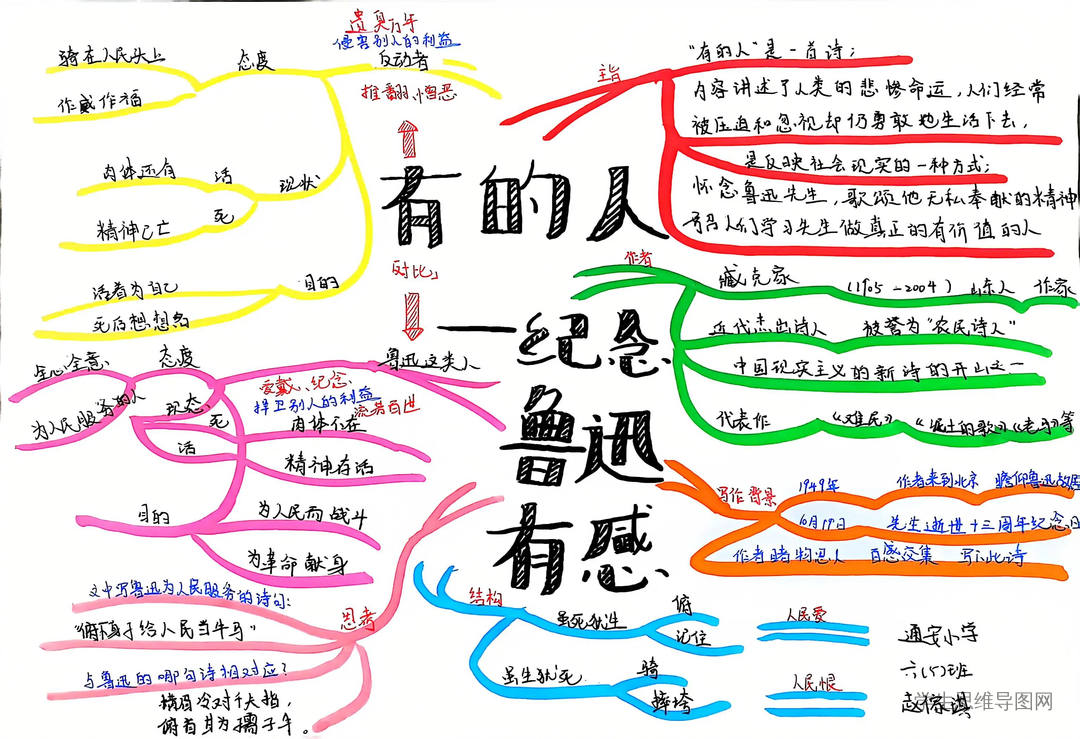 有的人
——纪念
鲁迅
有感
对比
遗臭万年
侵害别人的利益
反动者
推翻、憎恶
态度
骑在人民头上
作威作福
现状
活
肉体还有
死
精神已亡
目的
活着为自己
死后想想名
鲁迅这类人
爱戴、纪念、
捍卫别人的利益
流芳百世
态度
全心全意、
为人民服务的人
现态
死
肉体不在
活
精神存活
目的
为人民而战斗
为革命献身
思考
文中写鲁迅为人民服务的诗句:
"俯下身子给人民当牛马"
与鲁迅的哪句诗相对应?
横眉冷对千夫指,
俯首甘为孺子牛。
主旨
"有的人"是一首诗;
内容讲述了人类的悲惨命运,人们经常
被压迫和忽视却仍勇敢地生活下去,
是反映社会现实的一种方式;
怀念鲁迅先生,歌颂他无私奉献的精神
号召人们学习先生做真正的有价值的人
作者
臧克家 (1905-2004) 山东人 作家
近代杰出诗人 被誉为"农民诗人"
中国现实主义的新诗的开山之一
代表作 《难民》《泥土的歌》《老马》等
写作背景
1949年 作者来到北京 瞻仰鲁迅故居
10月19日 先生逝世十三周年纪念日
作者睹物思人 百感交集 写下此诗
结构
虽死犹生
俯
记住
人民爱
虽生犹死
骑
摔垮
人民恨
通安小学
六(5)班
学生思维导图网